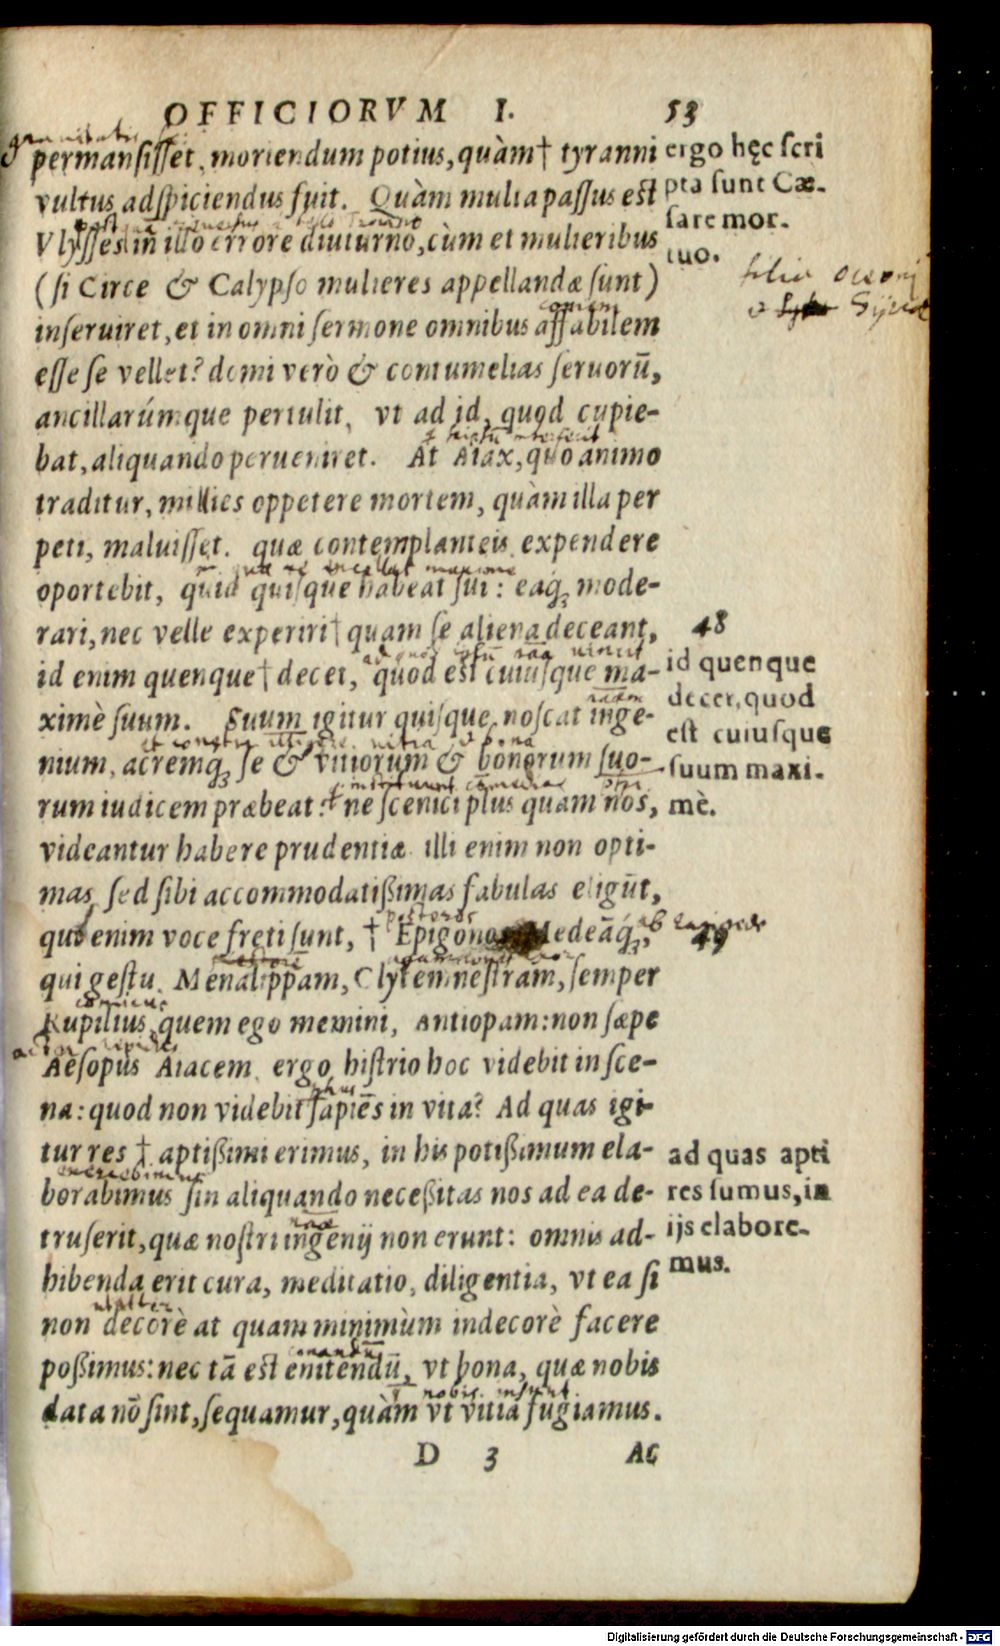 OFFICIORVM I. 53
permansisset, moriendum potius, quàm† tyranni
vultus adspiciendus fuit. Quàm multa passus est
Vlysses in illo errore diuturno, cùm et mulieribus
(si Circe & Calypso mulieres appellandæ sunt)
inseruiret, et in omni sermone omnibus affabilem
esse se vellet? domi verò & contumelias seruorū,
ancillarúmque pertulit, vt ad id, quod cupie-
bat, aliquando perueniret. At Aiax, quo animo
traditur, millies oppetere mortem, quàm illa per
peti, maluisset. quæ contemplanteis expendere
oportebit, quid quisque habeat sui: eaq́; mode-
rari, nec velle experiri† quam se aliena deceant,
id enim quenque† decet, quod est cuiusque ma-
ximè suum. Suum igitur quisque noscat inge-
nium, acremq́; se & vitiorum & bonorum suo-
rum iudicem præbeat: ne scenici plus quam nos,
videantur habere prudentiæ illi enim non opti-
mas, sed sibi accommodatißimas fabulas eligūt,
qui enim voce freti sunt, † Epigonos Medeāq́;,
qui gestu. Menalippam, Clytemnestram, semper
Rupilius, quem ego memini, Antiopam: non sæpe
Aesopus Aiacem. ergo histrio hoc videbit in sce-
na: quod non videbit sapiēs in vita? Ad quas igi-
tur res † aptißimi erimus, in his potißimum ela-
borabimus sin aliquando neceßitas nos ad ea de-
truserit, quæ nostri ingenij non erunt: omnis ad-
hibenda erit cura, meditatio, diligentia, vt ea si
non decorè at quam minimùm indecorè facere
poßimus: nec tā est enitendū, vt bona, quæ nobis
data nō sint, sequamur, quàm vt vitia fugiamus.
D 3 AC
ergo hęc scri
pta sunt Cæ-
sare mor-
tuo.
filia oceani
48
id quenque
decet, quod
est cuiusque
suum maxi-
mè.
49
ad quas apti
res sumus, in
ijs elabore-
mus.
Digitalisierung gefördert durch die Deutsche Forschungsgemeinschaft - DFG